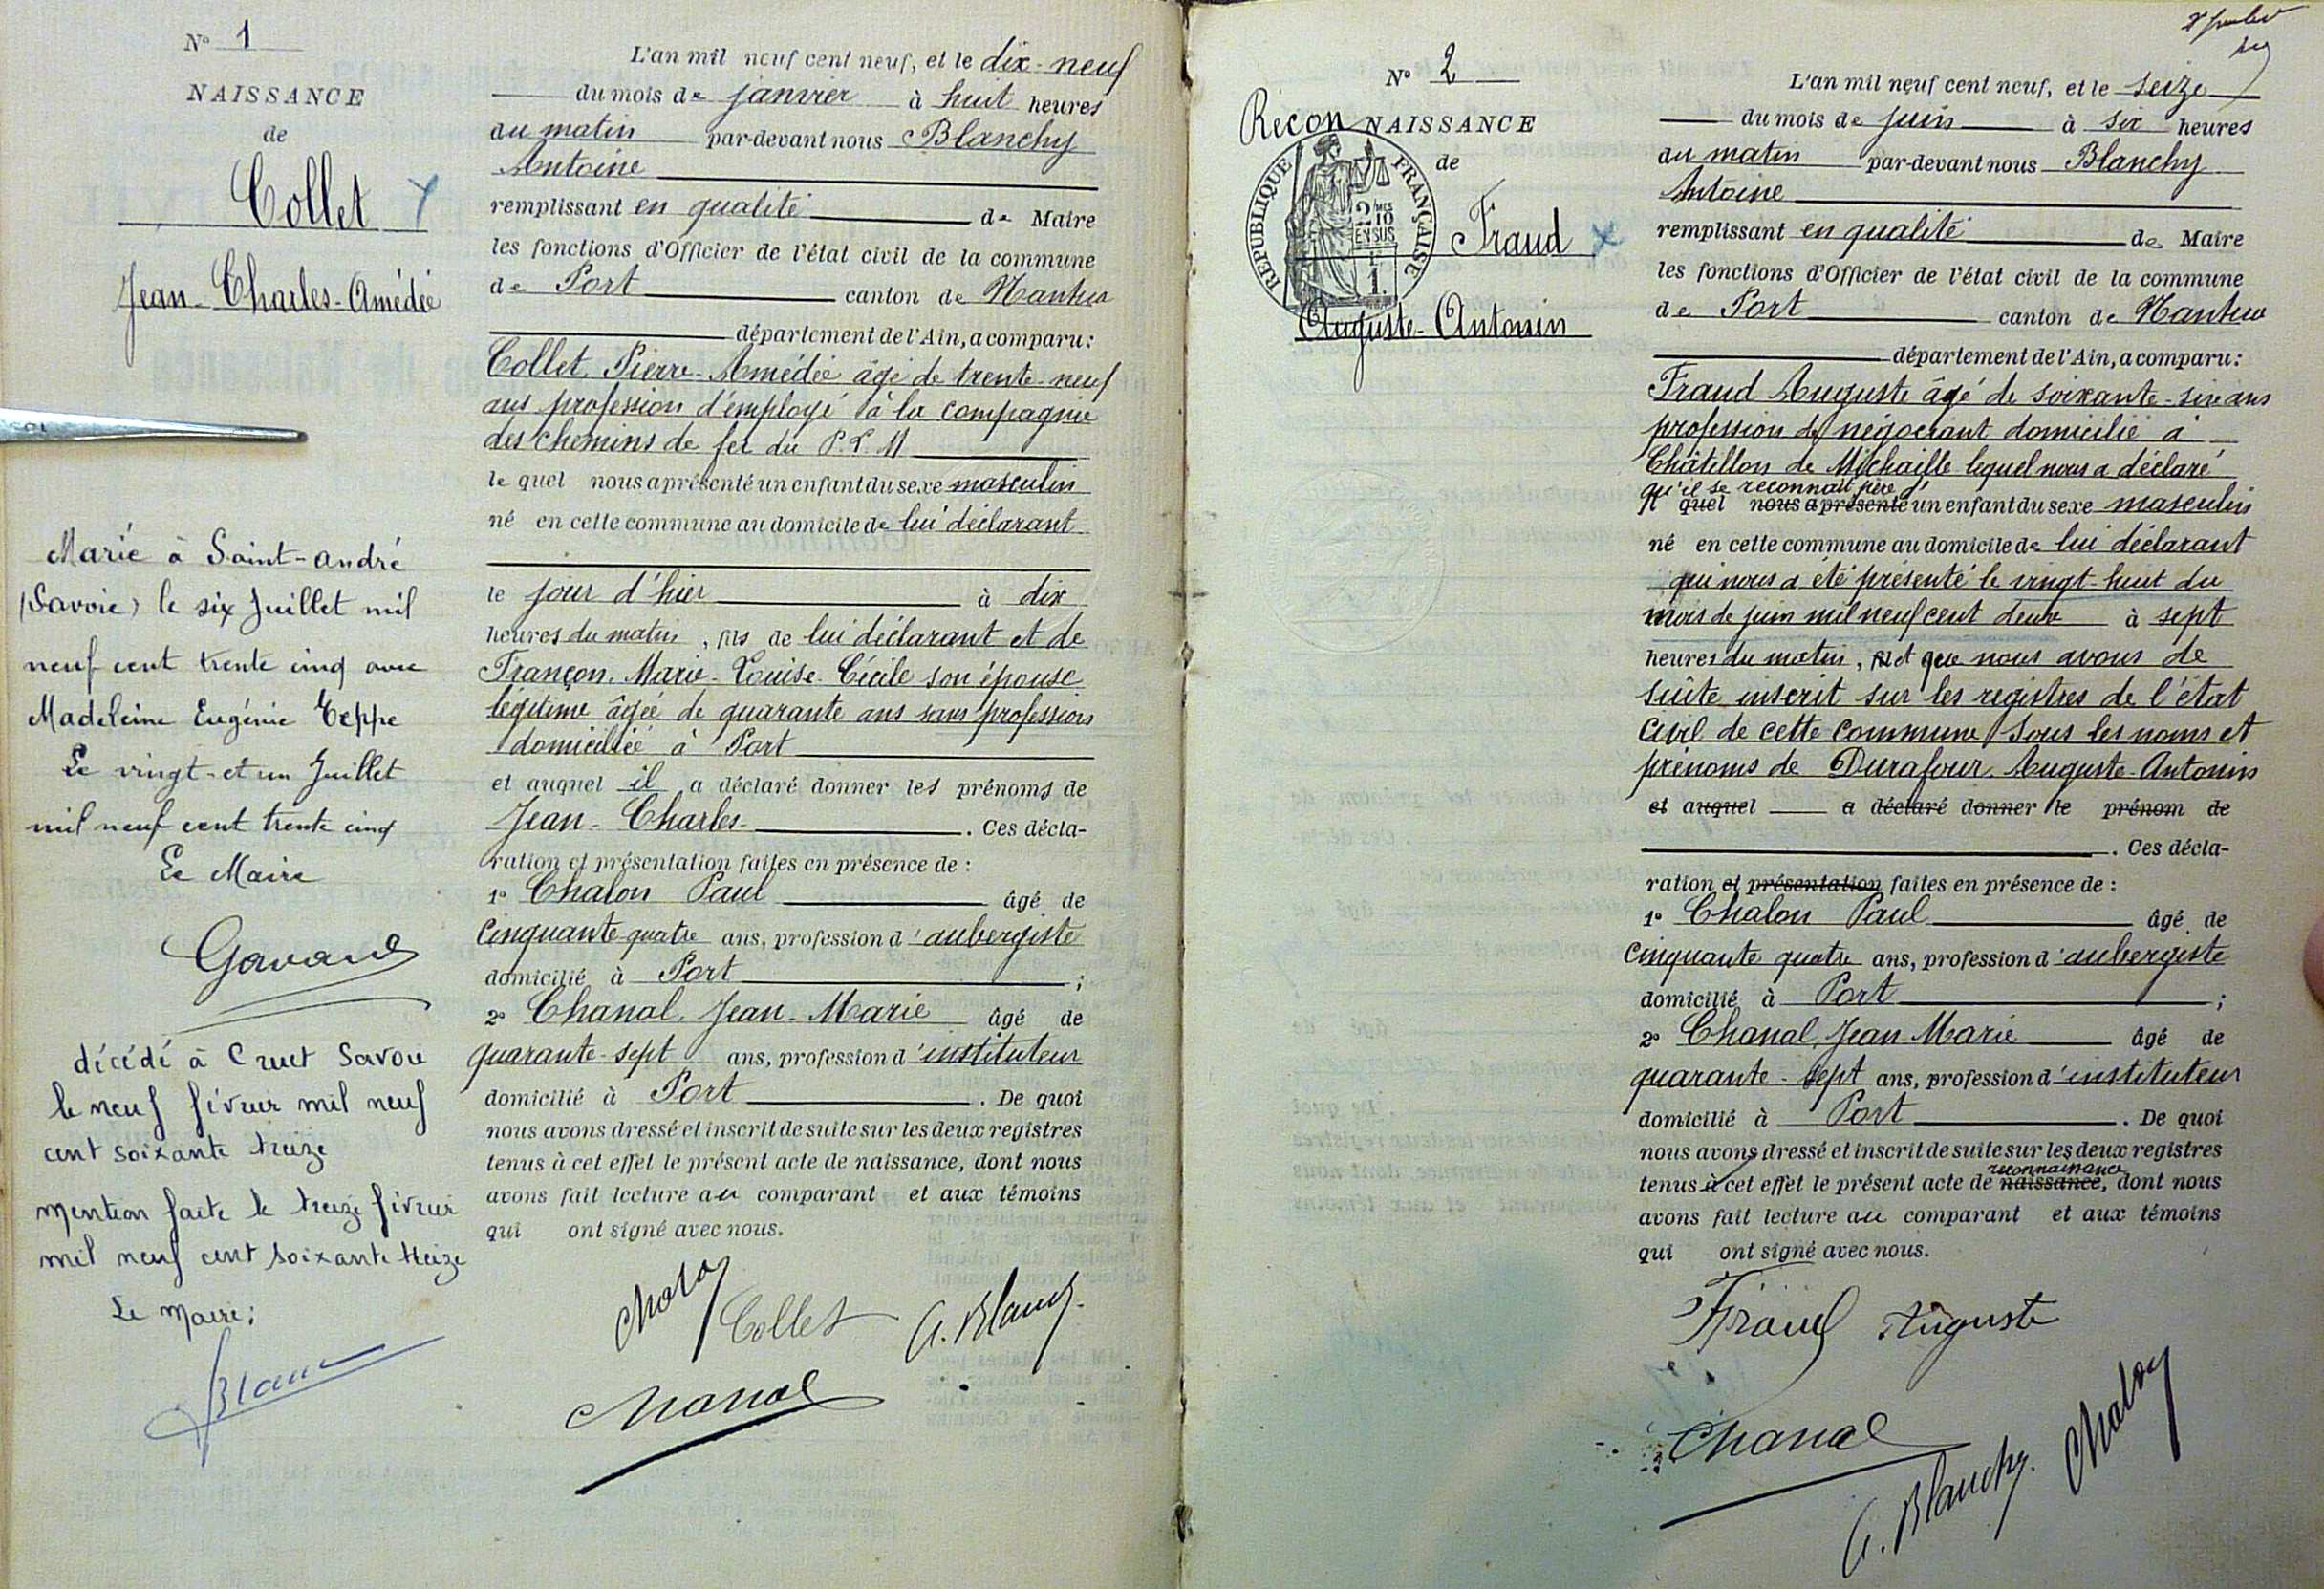 N° 1
NAISSANCE
de
Collet
Jean-Charles-Amédée
Marié à Saint-André
(Savoie) le six Juillet mil
neuf cent trente cinq avec
Madeleine Eugénie Teppe
Le vingt-et un Juillet
mil neuf cent trente cinq
Le Maire
décédé à Cruet Savoie
le neuf février mil neuf
cent soixante treize
Mention faite le treize février
mil neuf cent soixante treize
Le Maire:
L'an mil neuf cent neuf, et le dix-neuf
du mois de janvier à huit heures
du matin par-devant nous Blanchy
Antoine
remplissant en qualité de Maire
les fonctions d'Officier de l'état civil de la commune
de Port canton de Nantua
département de l'Ain, a comparu:
Collet, Pierre-Amédée âgé de trente-neuf
ans profession d'employé à la compagnie
des chemins de fer du P.L.M
le quel nous a présenté un enfant du sexe masculin
né en cette commune au domicile de lui déclarant
le jour d'hier à dix
heures du matin, fils de lui déclarant et de
Françon, Marie-Louise-Cécile son épouse
légitime âgée de quarante ans sans profession
domiciliée à Port
et auquel il a déclaré donner les prénoms de
Jean-Charles- . Ces décla-
ration et présentation faites en présence de :
1° Chalon Paul âgé de
cinquante-quatre ans, profession d'aubergiste
domicilié à Port ;
2° Chanal, Jean-Marie âgé de
quarante-sept ans, profession d'instituteur
domicilié à Port . De quoi
nous avons dressé et inscrit de suite sur les deux registres
tenus à cet effet le présent acte de naissance, dont nous
avons fait lecture au comparant et aux témoins
qui ont signé avec nous.
Chalon Collet A. Blanchy
Chanal
N° 2
Recon NAISSANCE
de
REPUBLIQUE FRANÇAISE
2/10
EN SUS
1F
1.
Fraud
Auguste-Antonin
L'an mil neuf cent neuf, et le seize
du mois de juin à six heures
du matin par-devant nous Blanchy
Antoine
remplissant en qualité de Maire
les fonctions d'Officier de l'état civil de la commune
de Port canton de Nantua
département de l'Ain, a comparu:
Fraud Auguste âgé de soixante-six ans
profession de négociant domicilié à
Châtillon de Michaille lequel nous a déclaré
qu'il se reconnait père d'
le quel nous a présenté un enfant du sexe masculin
né en cette commune au domicile de lui déclarant
qui nous a été présenté le vingt-huit du
mois de juin mil neuf cent deux à sept
heures du matin, et que nous avons de
suite inscrit sur les registres de l'état
civil de cette commune sous les noms et
prénoms de Durafour, Auguste-Antonin
et auquel a déclaré donner le prénom de
. Ces décla-
ration et présentation faites en présence de :
1° Chalon Paul âgé de
cinquante quatre ans, profession d'aubergiste
domicilié à Port ;
2° Chanal, Jean-Marie âgé de
quarante-sept ans, profession d'instituteur
domicilié à Port . De quoi
nous avons dressé et inscrit de suite sur les deux registres
reconnaissance
tenus à cet effet le présent acte de naissance, dont nous
avons fait lecture au comparant et aux témoins
qui ont signé avec nous.
Fraud Auguste
Chanal
A. Blanchy Chalon